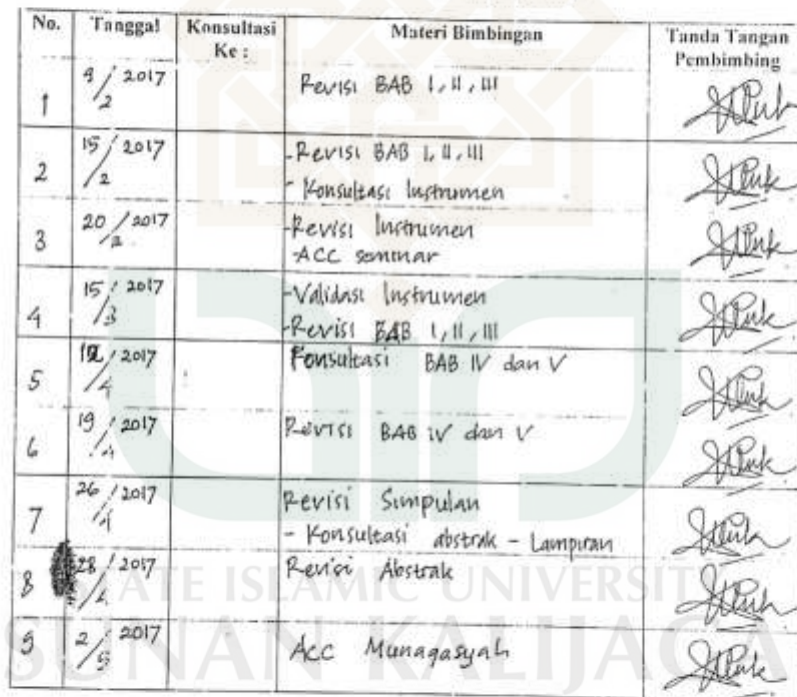 No. Tanggal Konsultasi Ke : Materi Bimbingan Tanda Tangan Pembimbing
1 9/2 2017 Revisi BAB I, II, III
2 15/2 2017 - Revisi BAB I, II, III
- Konsultasi Instrumen
3 20/2 2017 - Revisi Instrumen
- ACC seminar
4 15/3 2017 - Validasi Instrumen
- Revisi BAB I, II, III
5 12/4 2017 Konsultasi BAB IV dan V
6 19/4 2017 Revisi BAB IV dan V
7 26/4 2017 Revisi Simpulan
- Konsultasi abstrak - Lampiran
8 28/4 2017 Revisi Abstrak
9 2/5 2017 Acc Munaqasyah
ATE ISLAMIC UNIVERSIT
SUNAN KALIJAGA